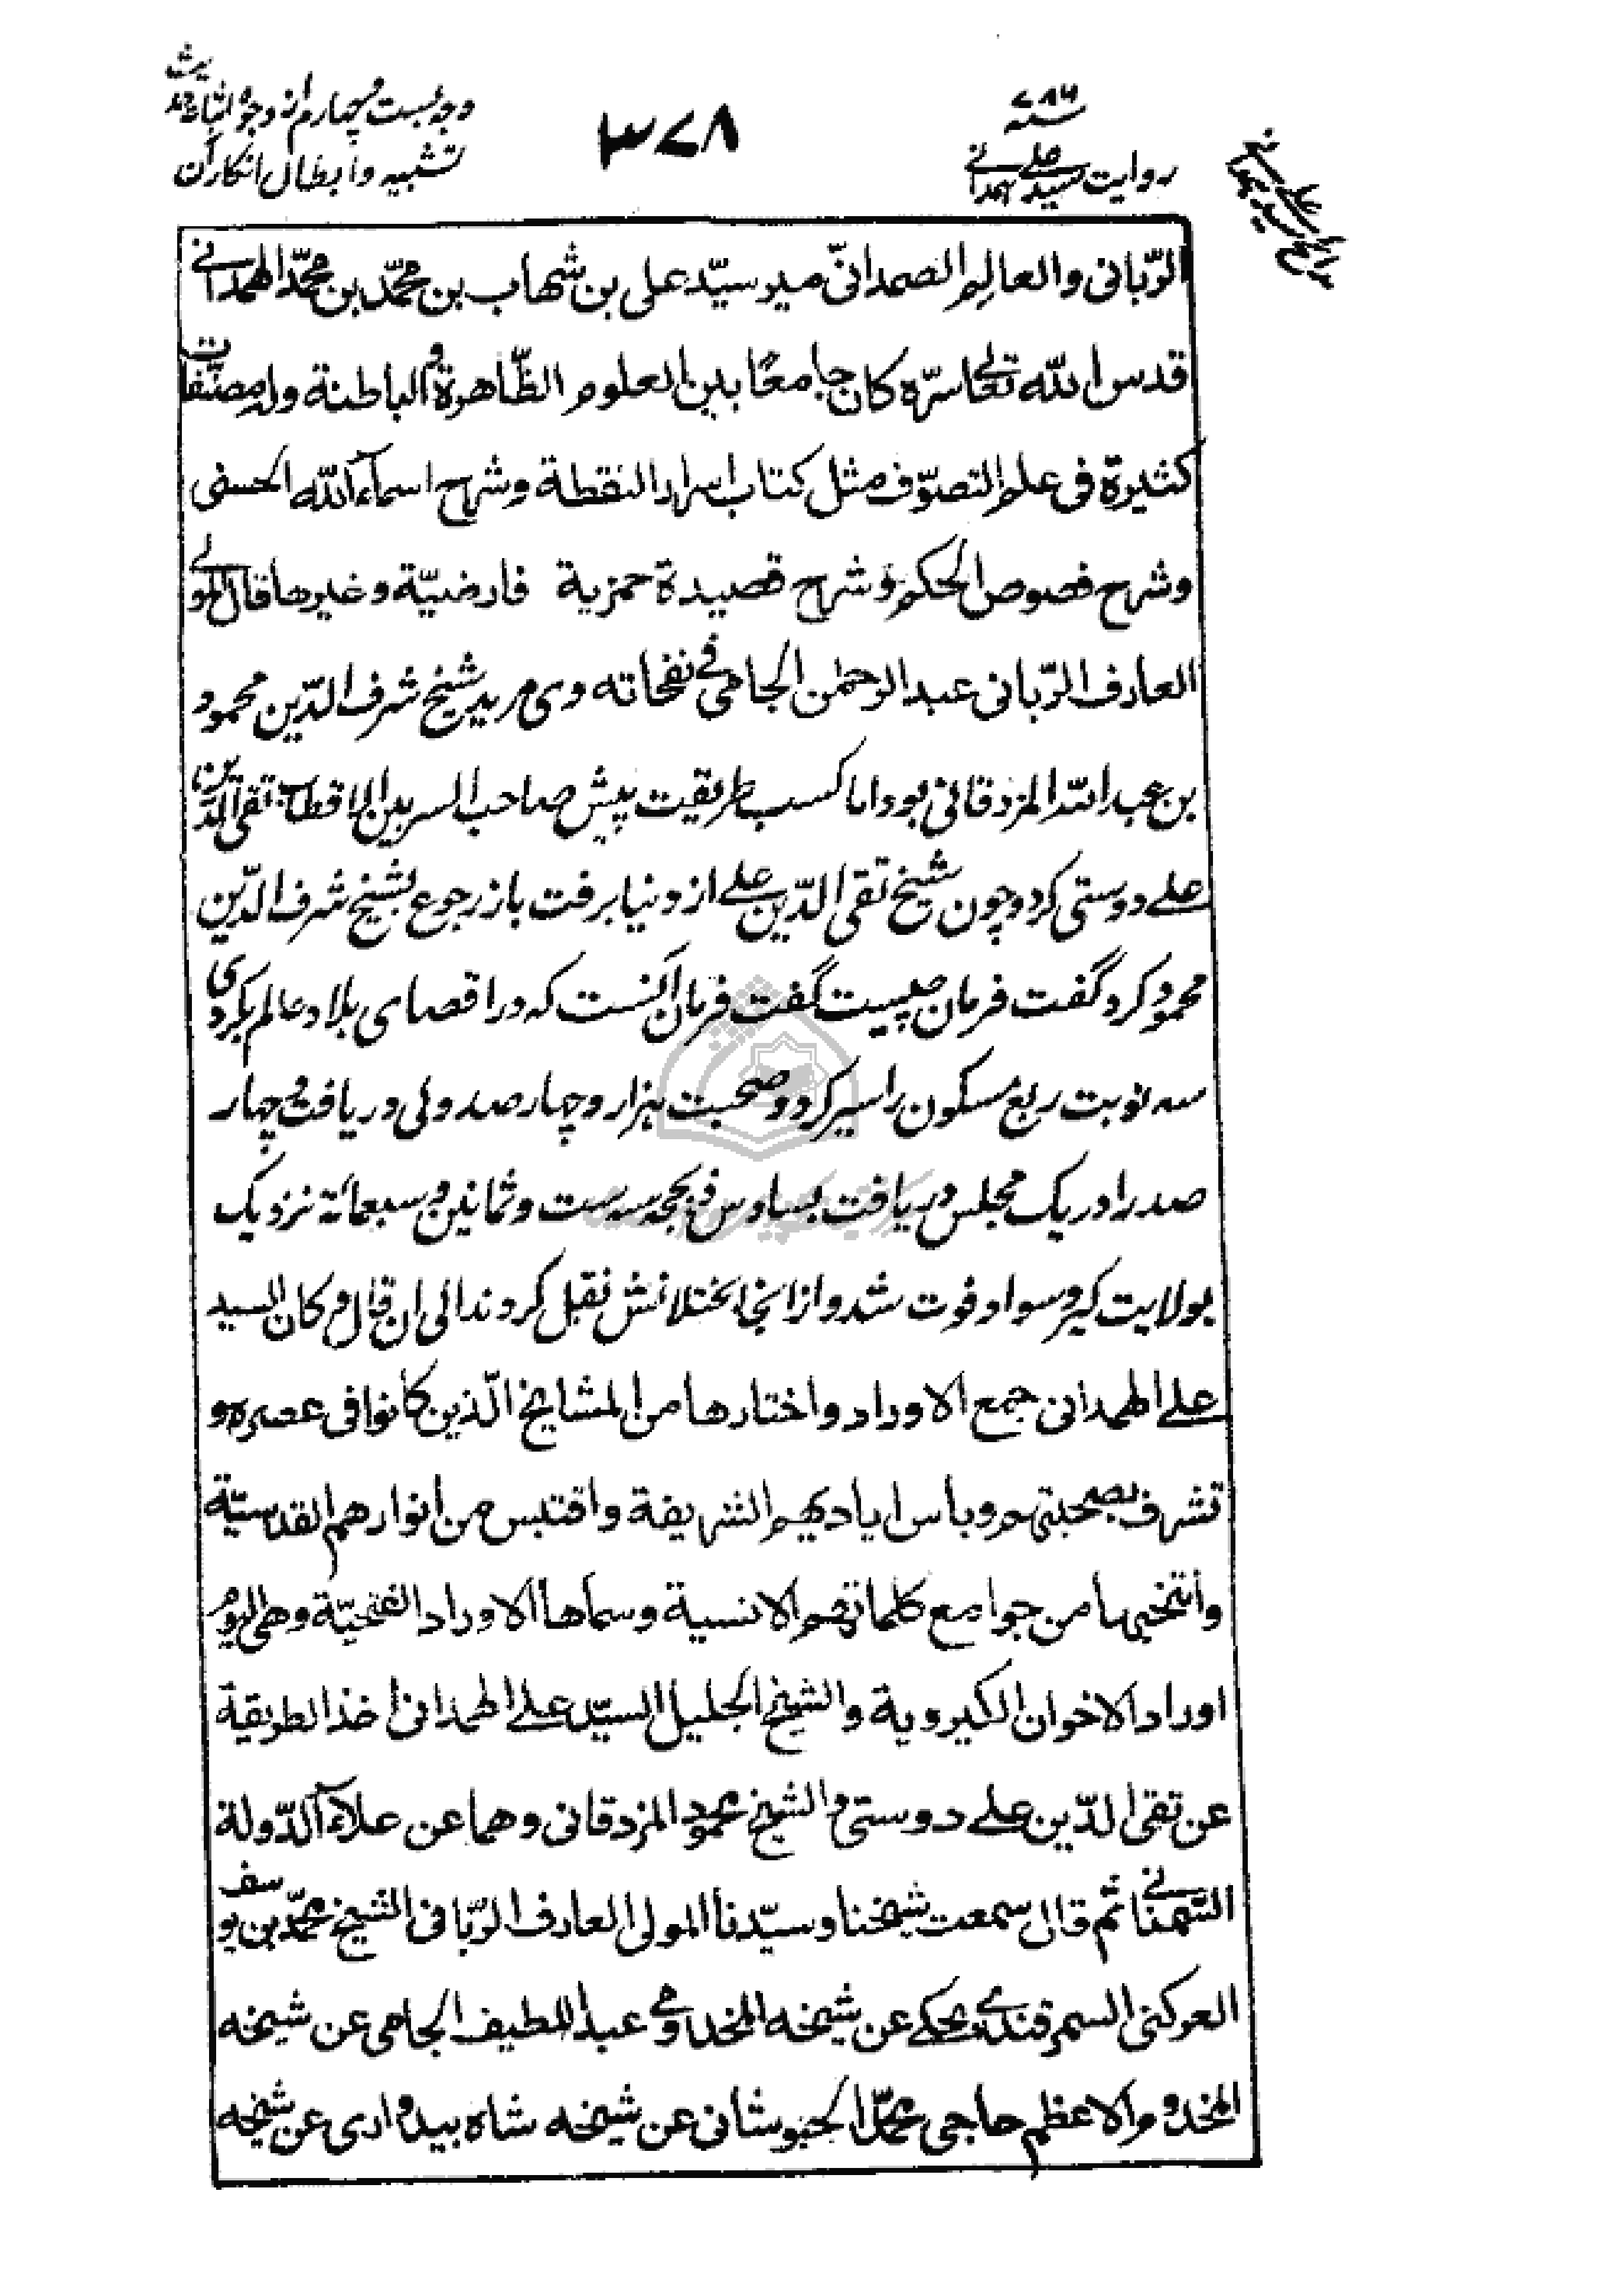 سنه ۷۸۶
روایت سید علی همدانی
۳۷۸
وجه بست و چهارم از وجوه اثبات حدیث
تشبیه و ابطال انکار آن
الربّانی والعالم الصمدانیّ میر سیّد علی بن شهاب بن محمّد بن محمّد الهمدانی
قدس الله تعالی سرّه کان جامعًا بین العلوم الظّاهرة والباطنة وله مصنّفات
کثیرة فی علم التصوّف مثل کتاب اسرار النقطة وشرح اسمآء الله الحسنی
وشرح فصوص الحکم وشرح قصیدة حمزیة فارضیّة وغیرها قال المولی
العارف الربّانی عبد الرحمٰن الجامی فی نفحاته وی مرید شیخ شرف الدّین محمود
بن عبد الله المزدقانی بود اما کسب طریقت پیش صاحب السر بین الاقطاب تقی الدّین
علی دوستی کرد و چون شیخ تقی الدّین علی از دنیا برفت باز رجوع بشیخ شرف الدّین
محمود کرد و گفت فرمان چیست گفت فرمان آنست که در اقصای بلاد عالم بگردی
سه نوبت ربع مسکون را سیر کرد و صحبت هزار و چهار صد ولی دریافت و چهار
صد را در یک مجلس دریافت بسادس ذی حجه سنه ست وثمانین وسبعمائة نزدیک
بولایت کبر و سواد فوت شد و از انجا بختلانش نقل کردند الی ان قال و کان السید
علی الهمدانی جمع الاوراد واختارها من المشایخ الّذین کانوا فی عصره و
تشرف بصحبتهم وباس ایادیهم الشریفة واقتبس من انوارهم القدسیّة
وأنتخبها من جوامع کلماتهم الانسیة وسماها الاوراد الفتحیّة وهی الیوم
اوراد الاخوان الکبرویة والشیخ الجلیل السیّد علی الهمدانی اخذ الطریقة
عن تقی الدّین علی دوستی والشیخ محمود المزدقانی وهما عن علاء الدّولة
السّمنانی ثم قال سمعت شیخنا وسیّدنا المولی العارف الربّانی الشیخ محمّد بن یوسف
العرکنی السمرقندی یحکی عن شیخه المخدومی عبد اللطیف الجامی عن شیخه
المخدوم الاعظم حاجی محمّد الخبوشانی عن شیخه شاه بیدواری عن شیخه